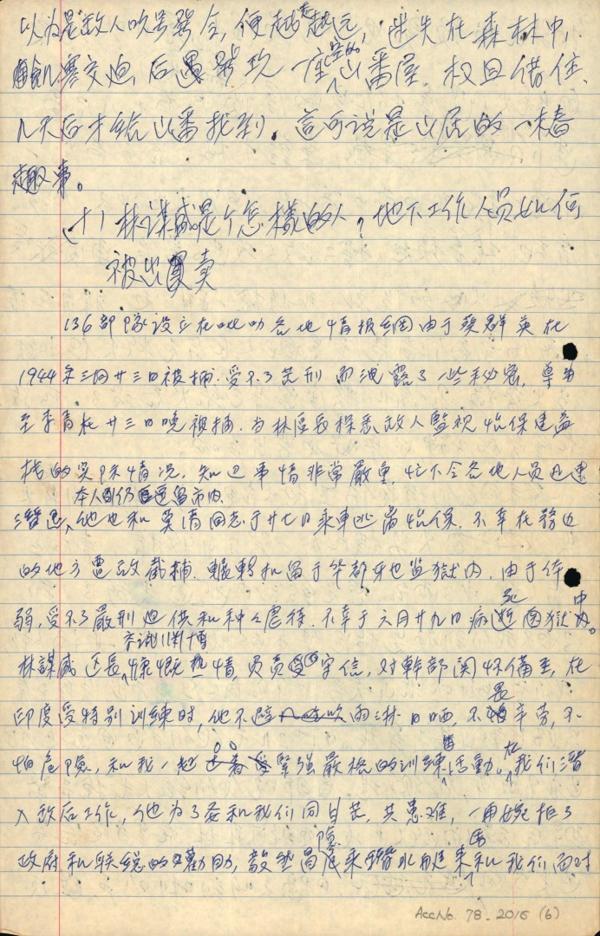 以为是敌人吹号发令,便越走越远,迷失在森林中,
饥寒交迫,后遇发现一座空的山番屋,权且借住,
几天后才给山番找到。这可说是山居的一椿
趣事。
(十)林谋盛是个怎样的人,地下工作人员如何
被出卖
136部队设立在吡叻各地情报网由于蔡群英在
1944年三月廿三日被捕,受不了苦刑而泄露了一些秘密,导
至李青在廿三日晚被捕,当林区长探悉敌人监视怡保建益
栈的实际情况,知道事情非常严重,忙下令各地人员迅速
本人则仍逗留市内
潜退,他也和莫清同志于廿七日乘车逃离怡保,不幸在务边
的地方遭敌截捕,辗转扣留于华都牙也监狱内,由于体
弱,受不了严刑迫供和种种虐待,不幸于六月廿九日病死狱中。
林谋盛区长慷慨热情,负责守信,对幹部関怀备至,在
印度受特别训练时,他不避雨淋日晒,不畏辛劳,不
怕危险,和我一起坚强严格的训练活动。在我们潜
入敌后工作,他为了要和我们同甘苦,共患难,一再婉拒了
政府和联总的劝助,毅然冒险乘潜水艇来和我们面对
AccNo. 78.2015 (6)